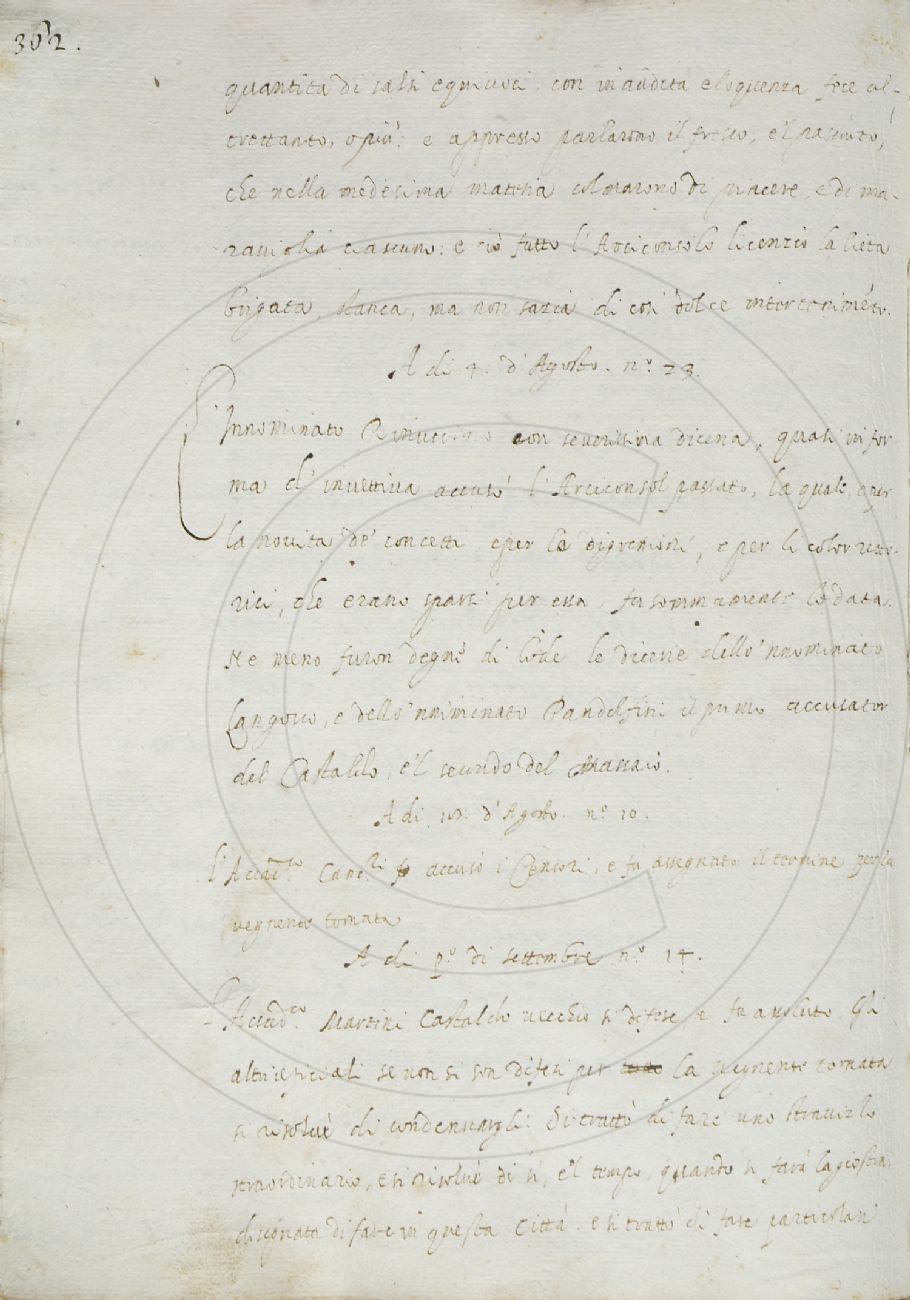 362.
quantità di salsi equivoci con inaudita eloquenza fece al-
trettanto, o più: e appresso parlarono il fresco, e'l pasciuto,
che nella medesima materia colmarono di piacere, e di ma-
raviglia ciascuno: e ciò fatto l'Arciconsolo licenziò la lieta
brigata, stanca, ma non sazia di così dolce intertenimeto.
A di 4. d'Agosto. n.º 23.
L'Innominato Rinuccino con severissima diceria, quasi in for
ma d'invettiva accusò l'Arciconsol passato, la quale, e per
la novità de' concetti, e per le digressioni, e per li color retto-
rici, che erano sparsi per essa, fu sommamente lodata.
Ne meno furon degne di lode le dicerie dello'nnominato
e dello'nnominato Pandolfini il primo accusator
del Castaldo, e'l secondo del Massaio.
A di 10. d'Agosto. n.º 10.
l'Accad.co Canc.ri accusò i Censori, e fu assegnato il termine per la
vegnente tornata
A di p.º di settembre n.º 14.
L'Accad.co Martini Castaldo vecchio si difese e fu assoluto. Gli
altri eficiali se non si son difesi per la vegnente tornata
si risolvè di condennargli: Si trattò di fare uno stravizzo
straordinario, e si risolvè di sì, e'l tempo, quando si farà la giostra
disegnata di fare in questa Città. e si trattò di fare particolari